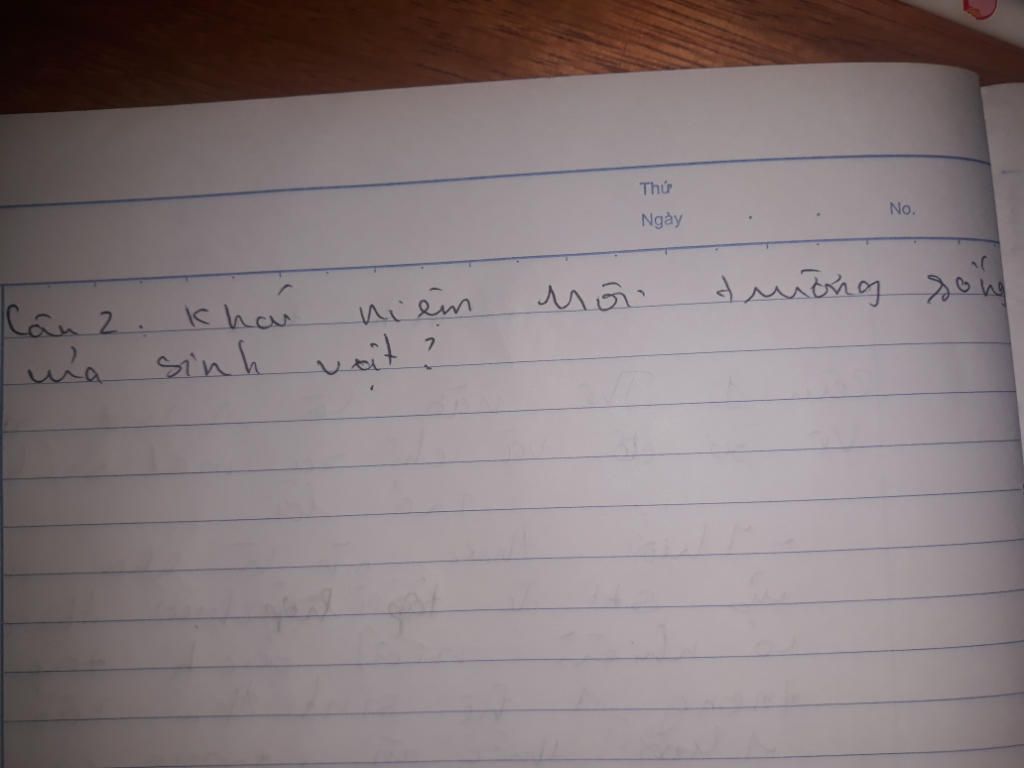 Thứ
Ngày . . No.
Câu 2. Khái niệm Môi trường sống
của sinh vật?